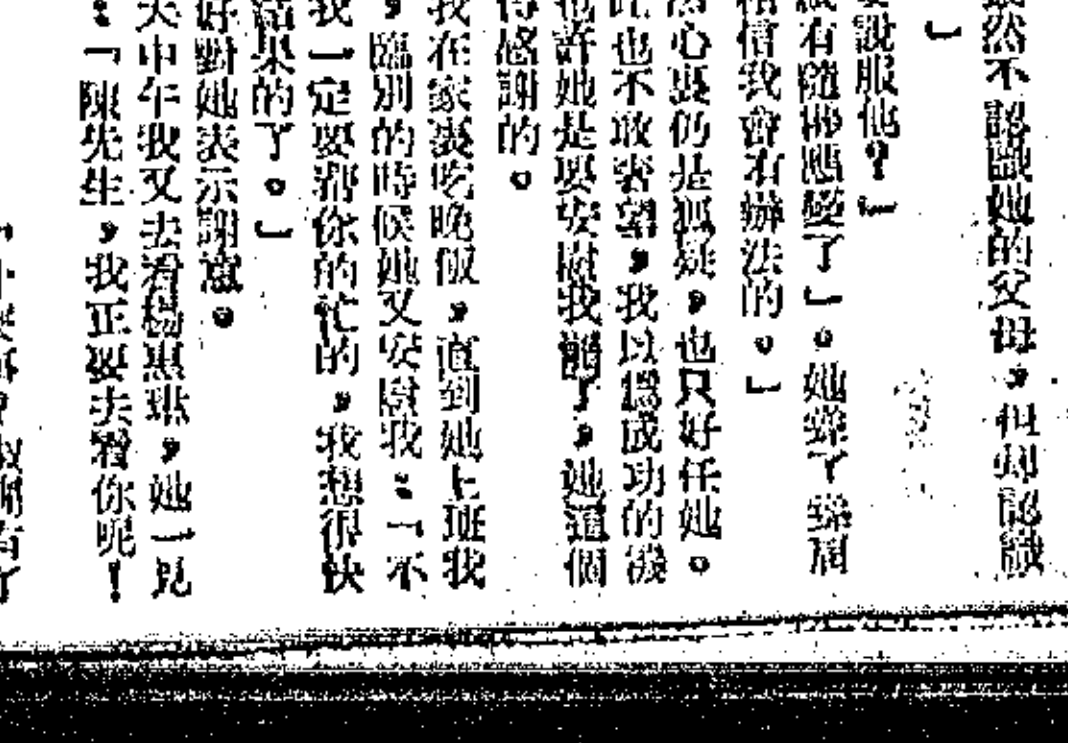 然不認識她的父母，但却認識
」
說服他？」
有隨機應變了」。她聳了聳肩
信我會有辦法的。」
心裏仍是狐疑，也只好任她。
也不敢奢望，我以爲成功的機
許她是要安慰我罷了，她這個
得感謝的。
我在家裏吃晚飯，直到她上班我
，臨別的時候她又安慰我：「不
我一定要幫你的忙的，我想很快
結果的了。」
好對她表示謝意。
天中午我又去看楊惠琳，她一見
：「陳先生，我正要去看你呢！